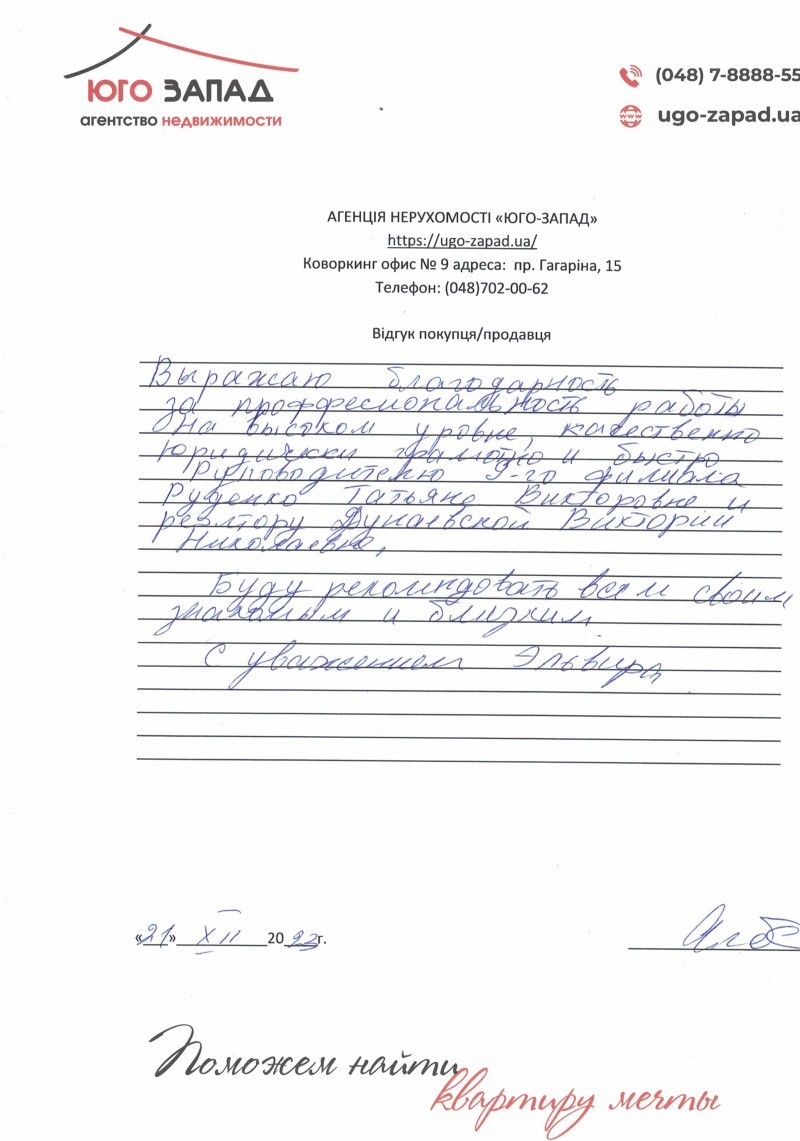 ЮГО ЗАПАД
агентство недвижимости
(048) 7-8888-55
ugo-zapad.ua
АГЕНЦІЯ НЕРУХОМОСТІ «ЮГО-ЗАПАД»
https://ugo-zapad.ua/
Коворкинг офис № 9 адреса: пр. Гагаріна, 15
Телефон: (048)702-00-62
Відгук покупця/продавця
Выражаю благодарность
за проффесиональность работы
На высоком уровне, качественно
юридически грамотно и быстро
Руководителю 9-го филиала
Руденко Татьяне Викторовне и
реэлтору Дунаевской Виктории
Николаевне,
Буду рекомндовать всем своим
знакомым и близким
С уважением Эльвира
«21» XII 2023г.
Поможем найти
квартиру мечты